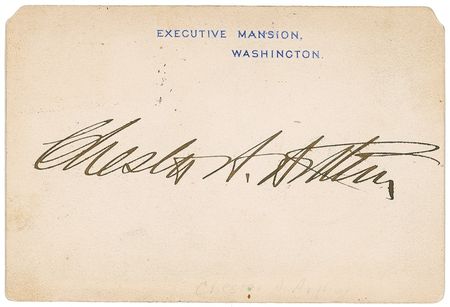 EXECUTIVE MANSION,
WASHINGTON.
Chester A. Arthur